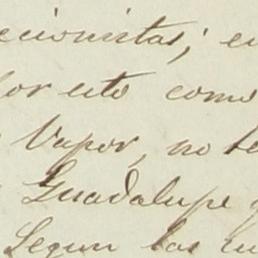 cionistas; e
or esto como
Vapor, no te
Guadalupe
Segun las